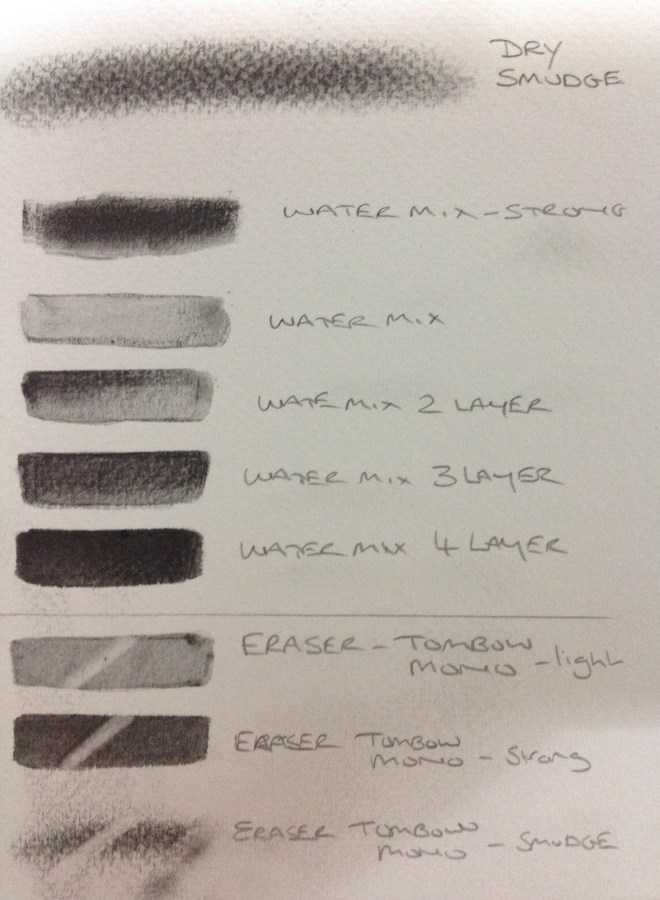 DRY
SMUDGE
WATER MIX - STRONG
WATER MIX
WATE MIX 2 LAYER
WATER MIX 3 LAYER
WATER MIX 4 LAYER
ERASER - TOMBOW
MONO - light
ERASER TOMBOW
MONO - Strong
ERASER TOMBOW
MONO - SMUDGE